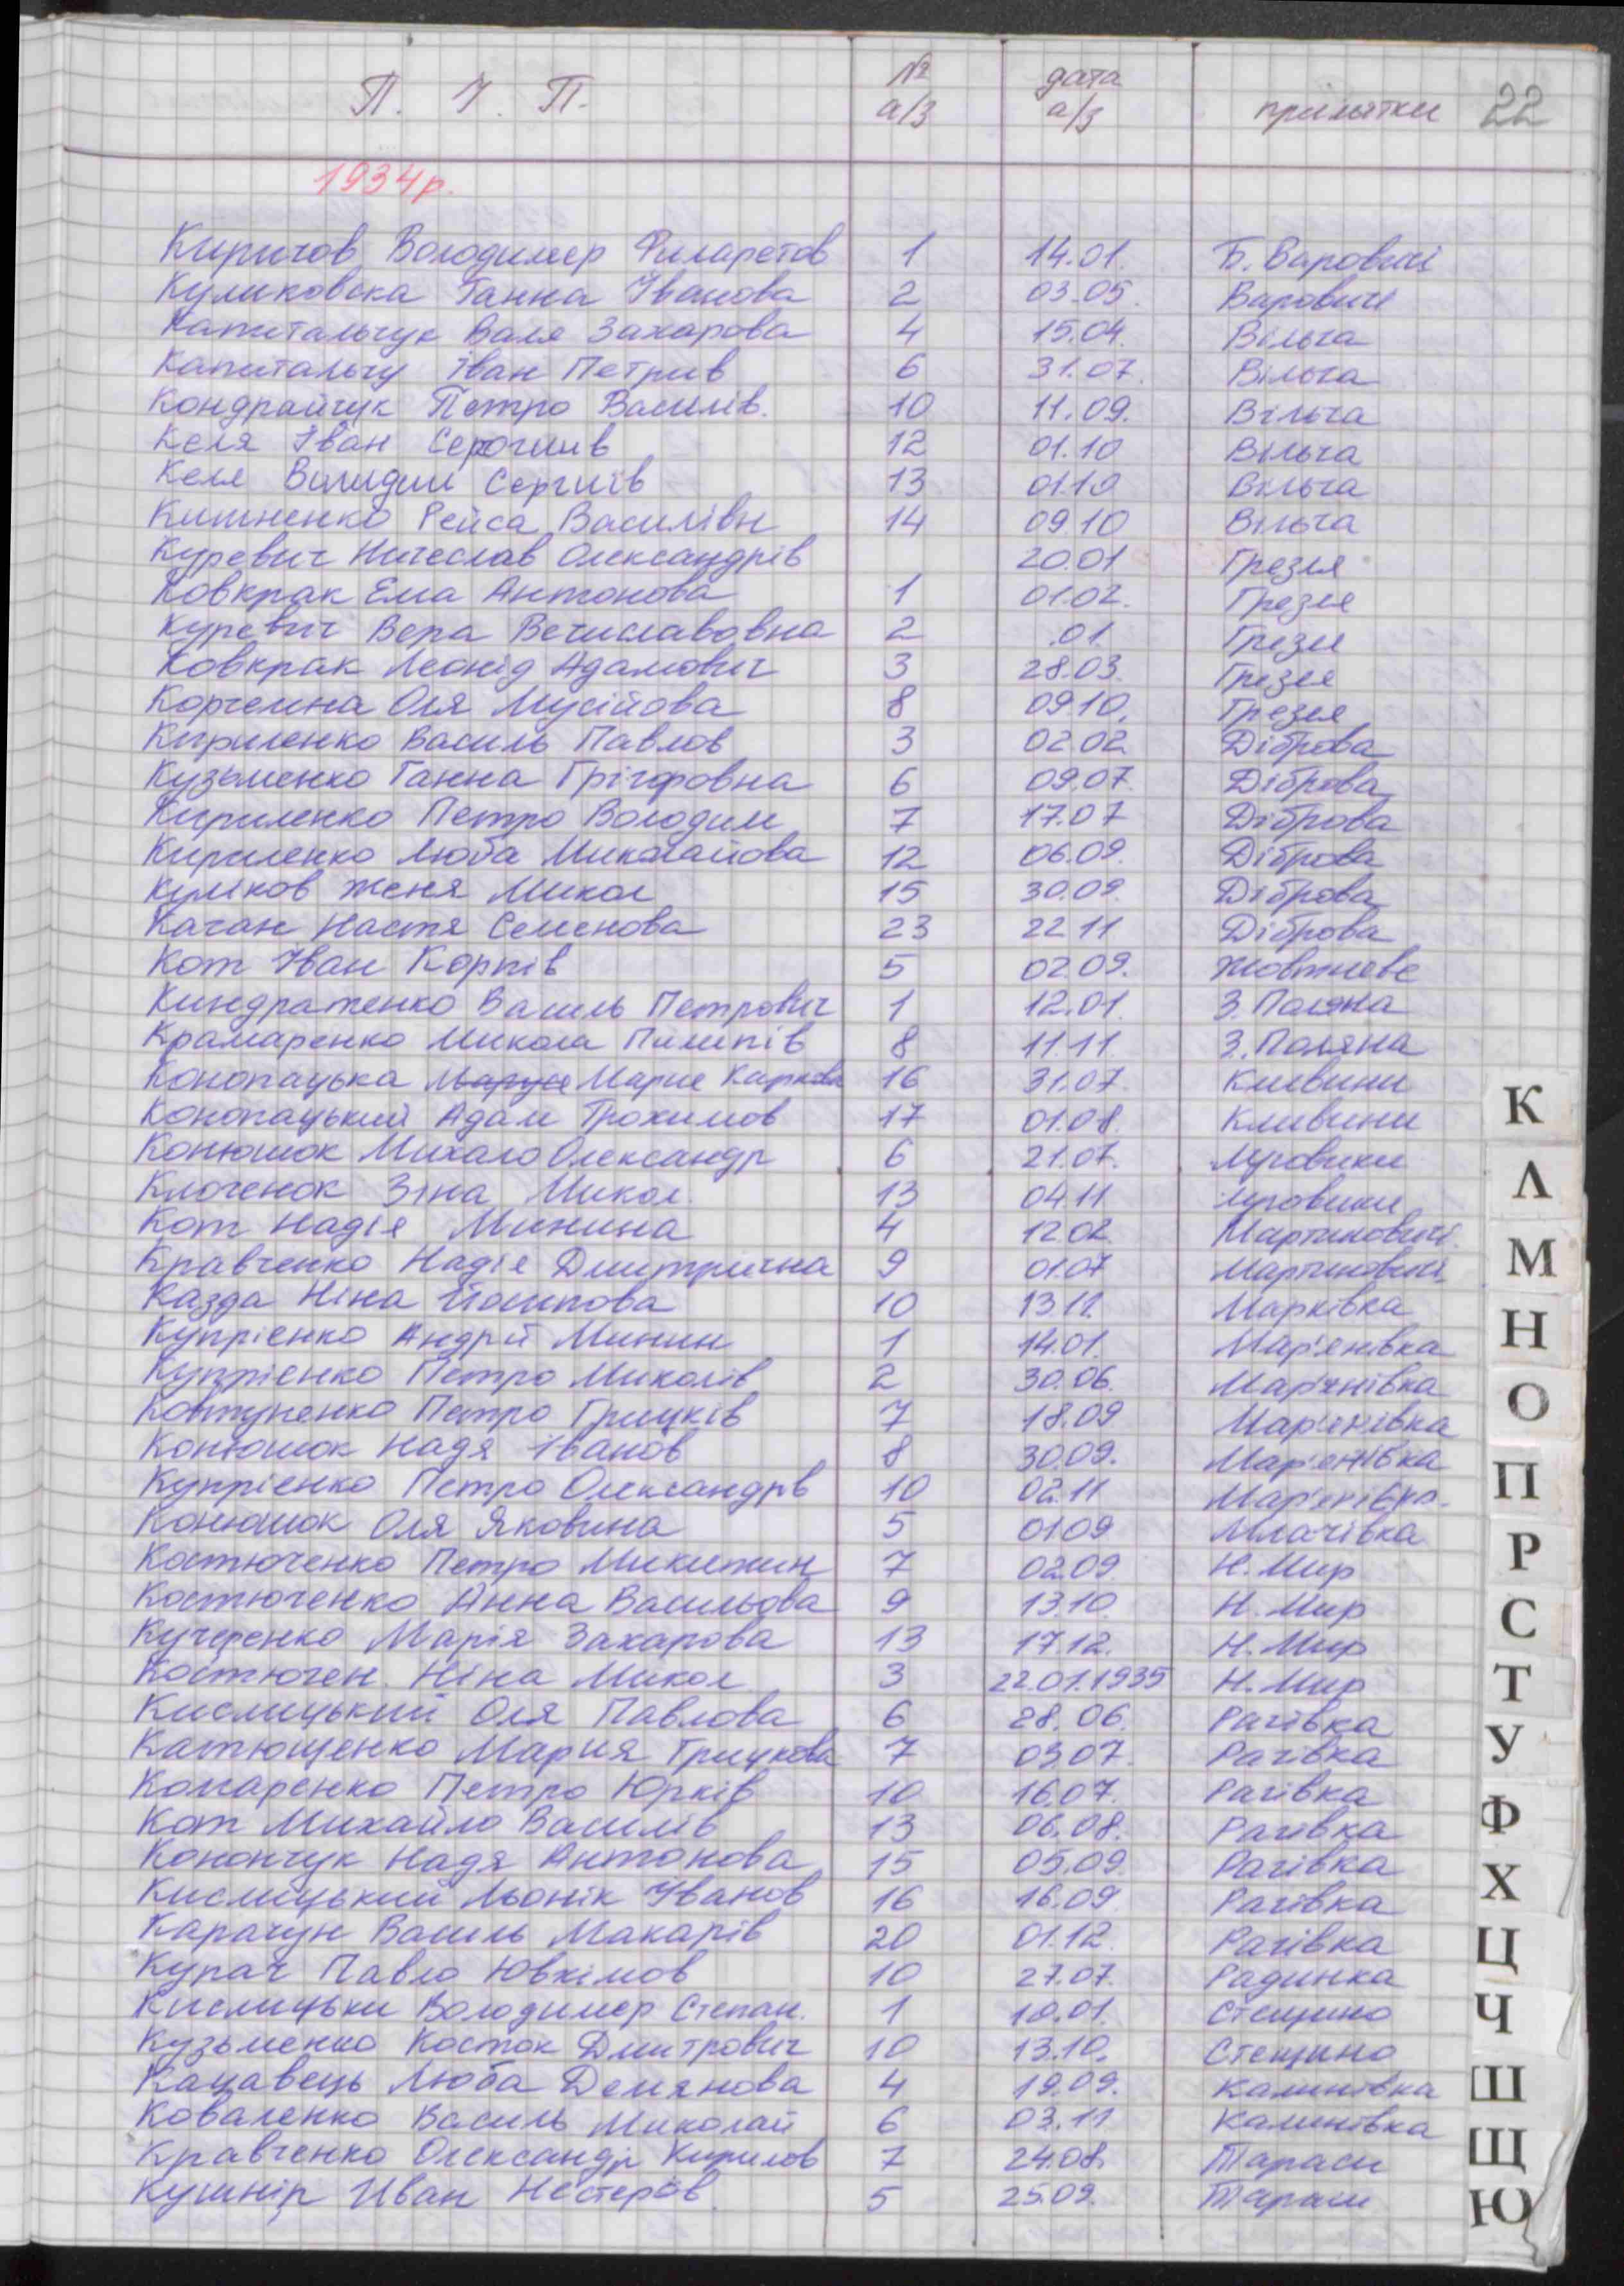 П. І. П. № а/з дата а/з примітки 22
1934р.
Киричов Володимер Филаретов 1 14.01. Б. Варовичі
Куликовска Ганна Іванова 2 03.05. Варовичі
Капитальчук Валя Захарова 4 15.04. Вільча
Капитальчу Іван Петрив 6 31.07. Вільча
Кондрайчук Петро Василів. 10 11.09. Вільча
Келя Іван 12 01.10 Вільча
Келя Сергиїв 13 01.10 Вільча
Рейса Василівн 14 09.10 Вільча
Куревич Олександрів 20.01 Грезля
Ковкрак Ема Антонова 1 01.02. Грезля
Куревич Вера Вечиславовна 2 .01. Грезля
Ковкрак Леонід Адамович 3 28.03. Грезля
Корчемна Оля Мусійова 8 09.10. Грезля
Кириленко Василь Павлов 3 02.02 Діброва
Кузьменко Ганна Грігоровна 6 09.07. Діброва
Кириленко Петро Володим 7 17.07 Діброва
Кириленко Люба Микалайова 12 06.09. Діброва
Куліков Женя Микол 15 30.09. Діброва
Качан Настя Семенова 23 22 11 Діброва
Кот Іван Корпів 5 02 09. Жовтневе
Киндратенко Василь Петрович 1 12.01. З. Поляна
Крамаренко Микола Пилипів 8 11.11. З. Поляна
Конопацька Маруся Марие Карпова 16 31.07. Кливини
Конопацький Адам Трохимов 17 01.08. Кливини
Конюшок Михало Олександр 6 21.07. Луговики
Клоченок Зіна Микол. 13 04.11 Луговики
Кот Надія Минина 4 12.02. Мартиновичі.
Кравченко Надіе Дмитрична 9 01.07 Мартиновичі
Казда Ніна Йосипова 10 13 11. Марківка
Купріенко Андрій Минин 1 14.01. Мар'янівка
Купріенко Петро Миколів 2 30.06. Мар'янівка
Ковтуненко Петро Грицків 7 18.09 Мар'янівка
Конюшок Надя Іванов 8 30.09. Мар'янівка
Купріенко Петро Олександрв 10 02.11 Мар'янівка.
Конюшок Оля Яковина 5 01.09 Млачівка
Костюченко Петро Микитин 7 02.09 Н. Мир
Костюченко Анна Васильова 9 13.10. Н. Мир
Кучеренко Марія Захарова 13 17.12. Н. Мир
Костючен. Ніна Микол 3 22.01.1935 Н. Мир
Кислицький Оля Павлова 6 28.06. Рагівка
Катющенко Мария Грицкова 7 03.07. Рагівка
Комаренко Петро Юрків 10 16.07. Рагівка
Кот Михайло Василів 13 06.08. Рагівка
Конончук Надя Антонова 15 05.09. Рагівка
Кислицький Льонік Іванов 16 16.09 Рагівка
Карачун Василь Макарів 20 01.12. Рагівка
Курач Павло Ювхимов 10 27.07. Радинка
Кислицьки Володимер Степан. 1 10.01. Стещино
Кузьменко Косток Дмитрович 10 13.10. Стещино
Кацавець Люба Демянова 4 19.09. Калинівка
Коваленко Василь Миколай 6 03.11 Калинівка
Кравченко Олександр Кирилов 7 24.08. Тараси
Кушнір Иван Нестеров 5 25.09. Тараси
К
Л
М
Н
О
П
Р
С
Т
У
Ф
Х
Ц
Ч
Ш
Щ
Ю